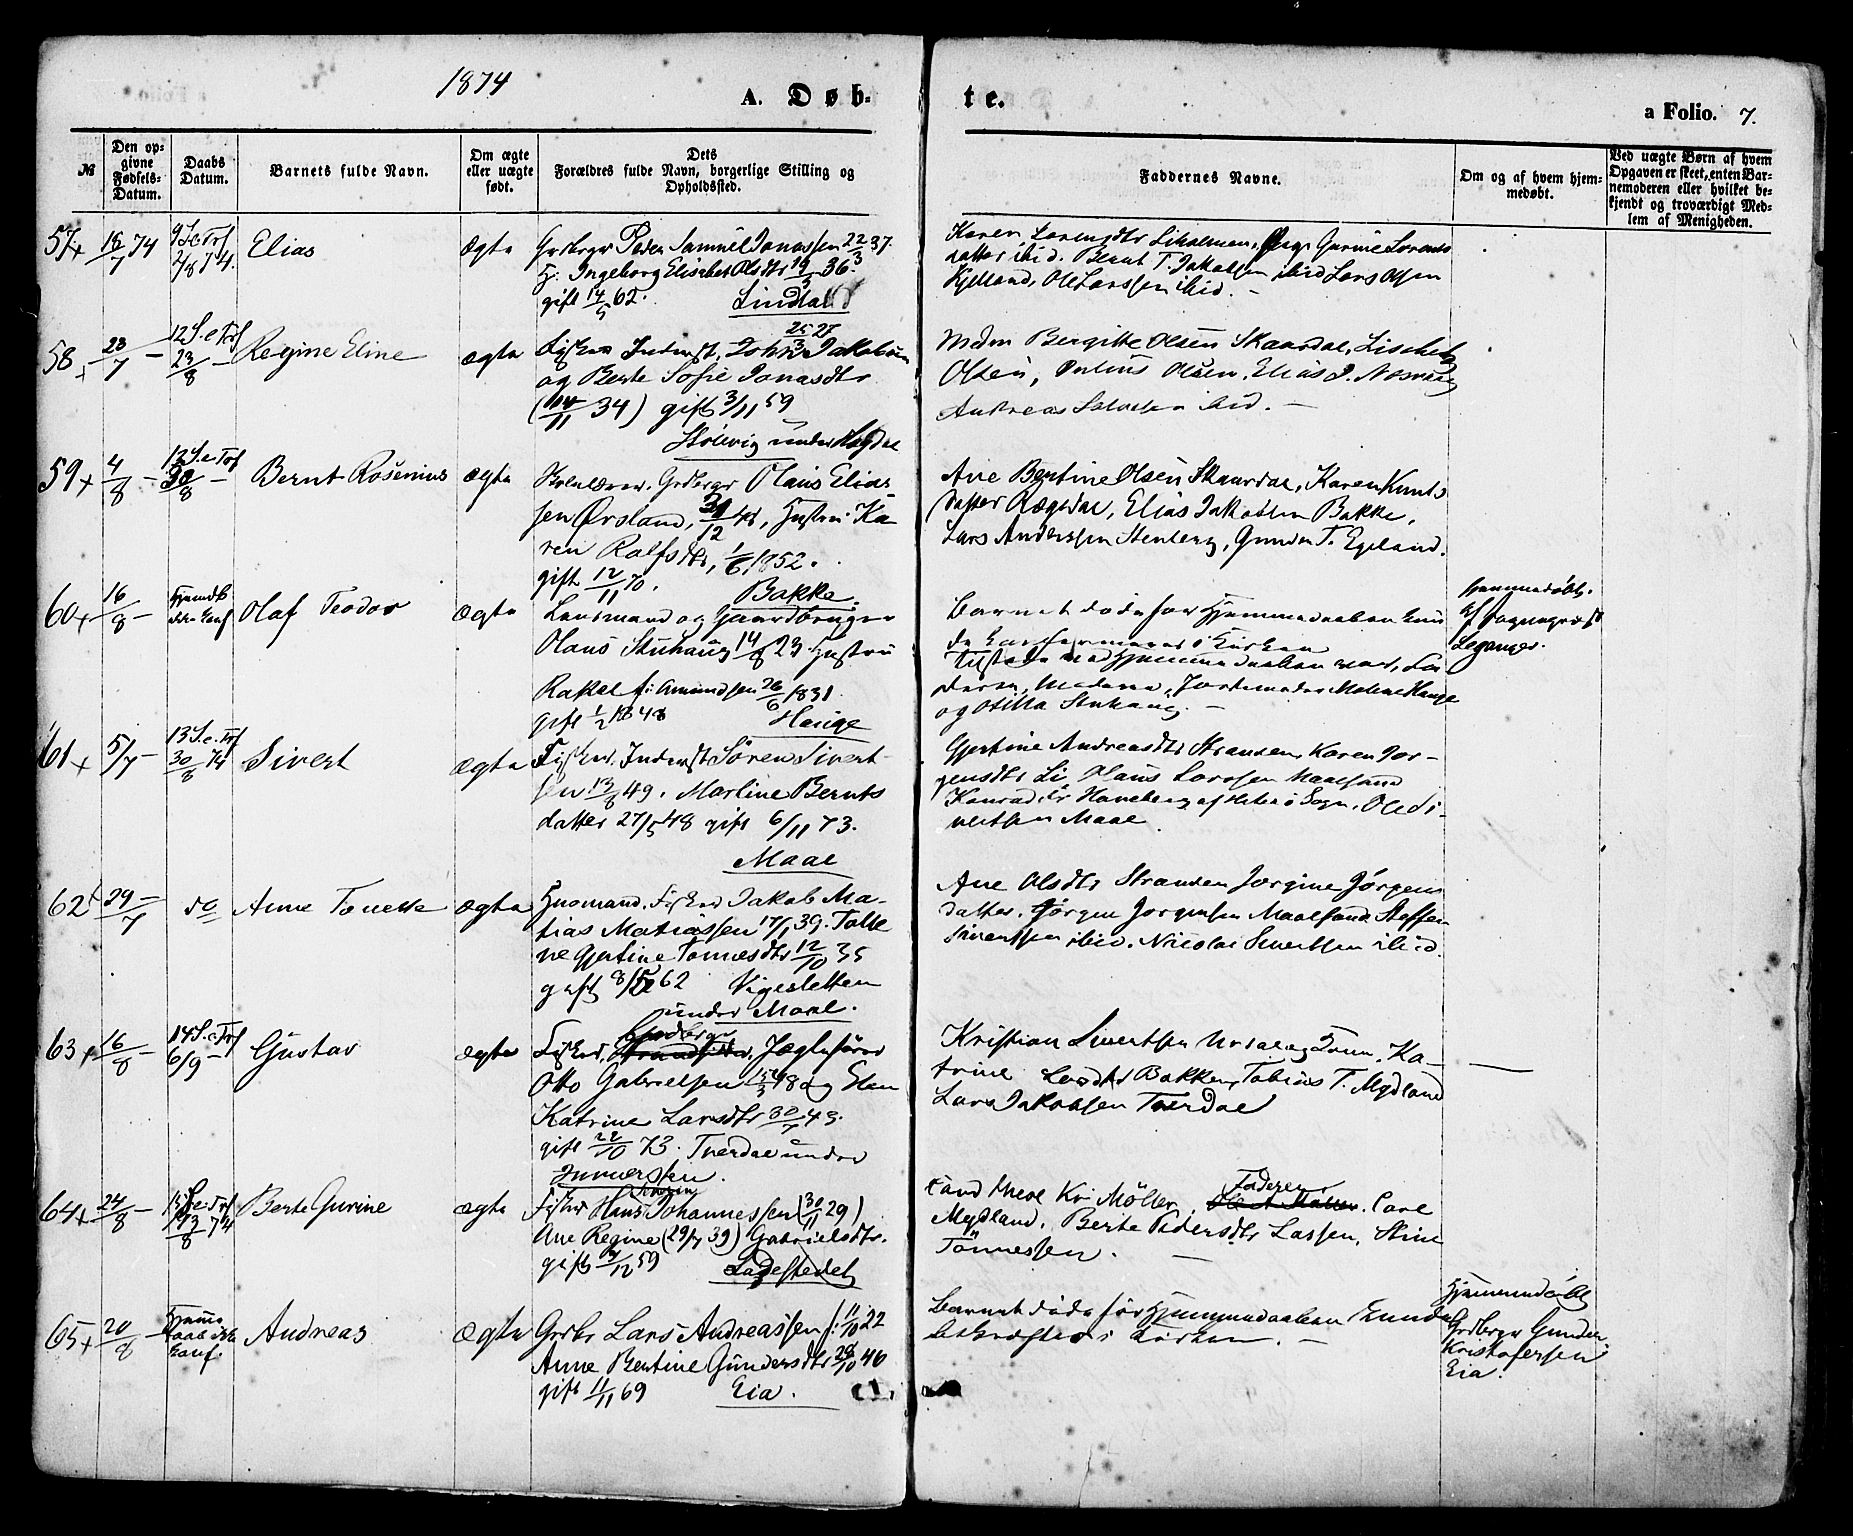 1874
A. Døb-
te.
a Folio. 7.
№
Den op-
givne
Fødsels-
Datum.
Daabs
Datum.
Barnets fulde Navn.
Om ægte
eller uægte
født.
Dets
Forældres fulde Navn, borgerlige Stilling og
Opholdssted.
Faddernes Navne.
Om og af hvem hjem-
medøbt.
Ved uægte Børn af hvem
Opgaven er skeet, enten Bar-
nemoderen eller hvilket be-
kjendt og troværdigt Med-
lem af Menigheden.
57 + 16/7 74
9 S.e.Trf
2/8 74.
Elias
Ægte
Grdbrgr Peder Samuel Jonassen 22/3 37.
H: Ingeborg Elisabet Olsdtr 19/3 36.
gift 14/5 62. Lindland
Karen Lorensdtr Liholmen, Gurine Lorens
datter ibid. Bernt T. Jakobsen ibid Lars Olsen
Kjelland, Ole Larssen ibid.
58 + 28/7 –
12 S.e.Trf
23/8 –
Regine Eline
ægte
Fisker Inderst, John Jakobsen 25/3 27
og Berte Sofie Jonasdtr
(14/11 34) gift 3/11 59
Stølsvig under Logdal
Madm Bergitte Olsen Skaardal, Lisebet
Olsen, Julius Olsen, Elias J. Nesvaag
Andreas Salvesen ibid. –
59 + 4/8 –
13 S.e.Trf
30/8 –
Bernt Rosenius
ægte
Skolelærer, Grdbrgr Olaus Elias-
sen Ørsland, 31/12 48, Hustru Ka-
ren Rolfsdtr, 1/6 1852.
gift 12/11 70. Bakke
Ane Bertine Olsen Skaardal, Karen Knuts
datter Rægedal, Elias Jakobsen Bakke,
Lars Anderssen Stenberg, Gunder T. Egeland.
60 + 16/8 –
Hjemdb
ikke konf
Olaf Teodor
Ægte
Lensmand og Gaardbruger
Olaus Stuhaug 14/8 23 Hustru
Rakel f: Amundsen 26/6 1831.
gift 1/2 1848 Hauge
Barnet døde før Hjemmedaaben kun
de konfirmeres i Kirken
Tilstede ved Hjemmedaaben var, Fa-
deren, Moderen, Jordemoder Malene Hauge
og Otilia Stuhaug. –
Hjemmedøbt
af Sognepræst
Leganger.
61 + 5/7 –
13 S.e.Trf
30/8 74
Sivert
Ægte
Fisker, Inderst Søren Sivert-
sen 13/8 49. Martine Bernts
datter 27/5 48 gift 6/11 73.
Maal
Gjertine Andreasdtr Stranden, Karen Jør-
gensdtr Li, Olaus Larssen Maalsund
Konrad Haneberg af Heto i Sogn, Ole Si-
vertsen Maal
62 + 29/7 –
do
Anne Tonette
Ægte
Husmand, Fisker Jakob Ma-
tias Matiassen 17/1 39. Tolle
ne Gjertine Tønnesdtr 12/10 35
gift 8/5 62 Vigesletten
under Maal.
Ane Olsdtr Stranden Jørgine Jørgens
datter, Jørgen Jørgensen Maalsund, Steffen
Sivertsen ibid. Nicolai Sivertsen ibid.
63 + 16/8 –
14 S.e.Trf
6/9 –
Gustav
ægte
Grdbrgr
Fisker, Strandsidder, Jægtefører
Otto Gabrielsen 15/3 48 og Elen
Katrine Larsdtr 30/7 49.
gift 22/10 73. Tuerdal under
Immerstein.
Kristian Sivertsen Urdal og Kone, Ka-
trine Larsdtr Bakken, Tobias T. Mydland
Lars Jakobsen Tuerdal
64 + 24/8 –
15 S.e.Trf
13/8 74
Berte Gurine
ægte
Fisker Hans Johannessen (30/11 29)
Ane Regine (29/7 39) Gabrielsdtr.
gift 9/12 59 Ladestedet
Cand theol Kr. Møller, Faderen Carl
Mydland, Berte Pedersdtr Lassen, Stine
Tønnessen. –
65 + 20/8 –
Hjemme
daab ikke
konf.
Andreas
Ægte
Grdbr Lars Andreassen f: 11/10 22
Anne Bertine Gundersdtr 28/10 46
gift 11/11 69 Eia.
Barnet døde før Hjemmedaaben kunde
bekræftes i Kirken. –
Hjemmedøbt
Grdbrgr Gunder
Kristofersen
Eia.